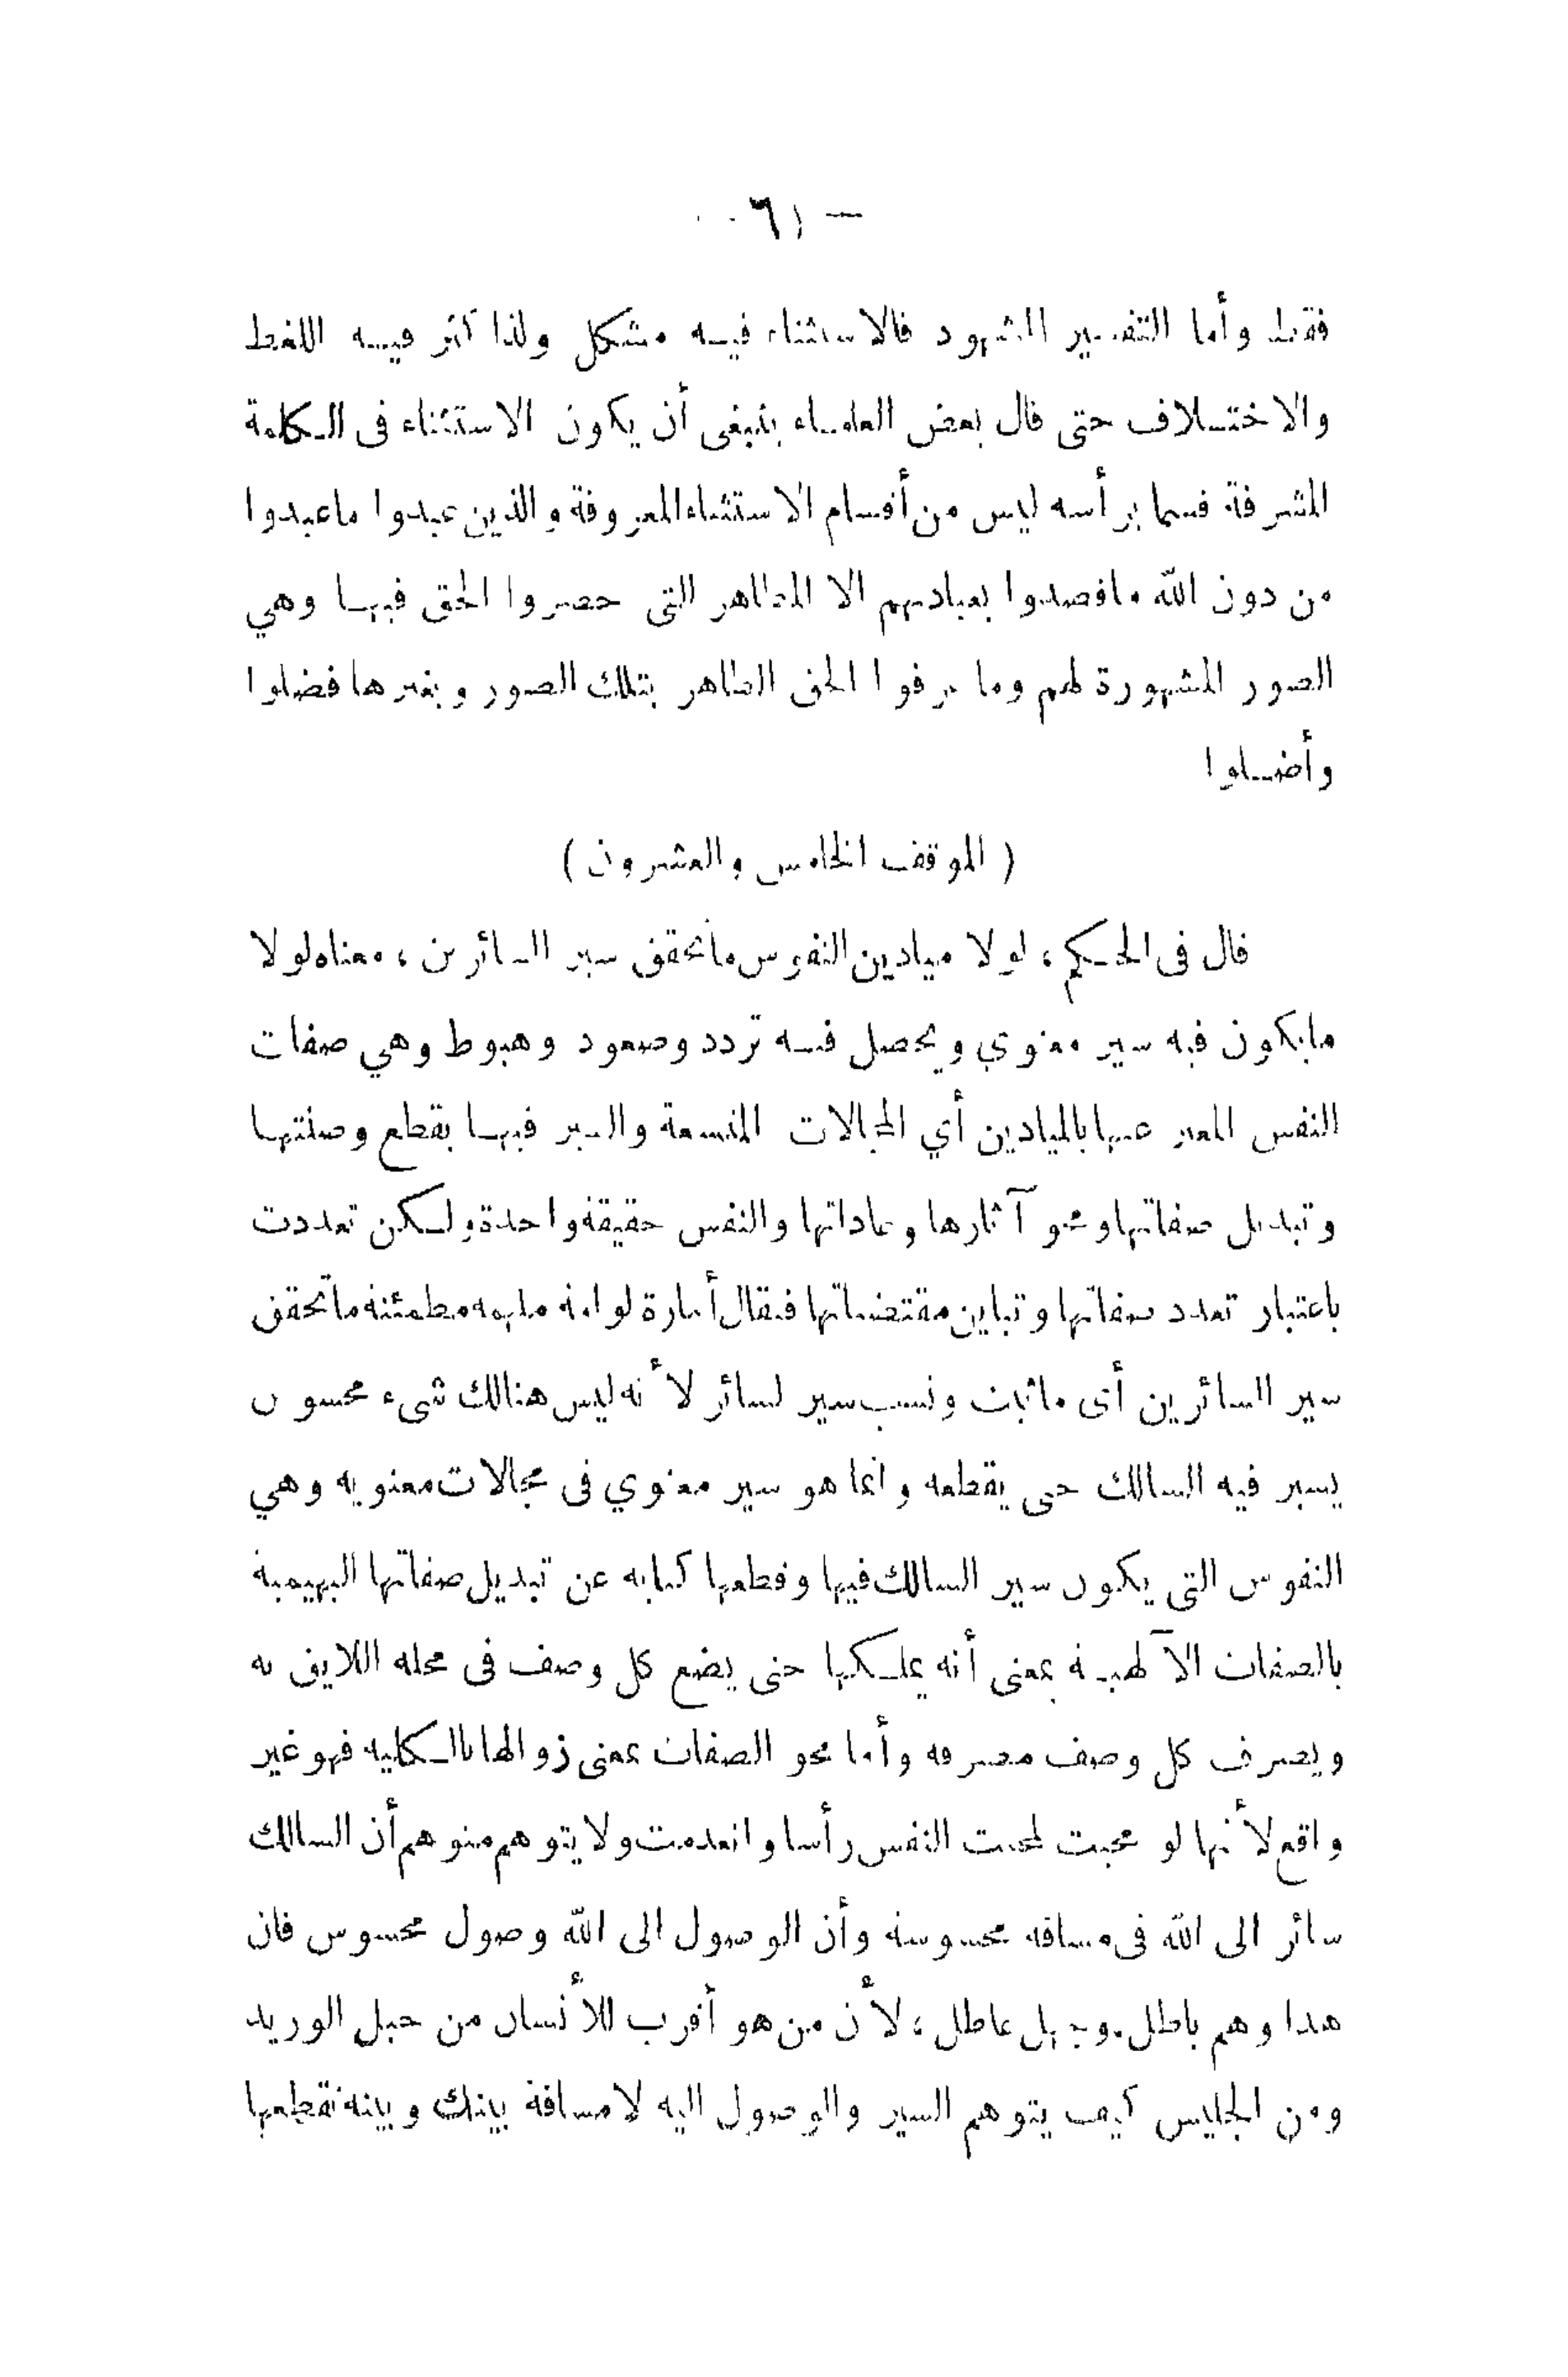 — ٦١
فقط وأما التفسير المشهود فالاستثناء فيه مشكل ولذا كثر فيه اللغط
والاختلاف حتى قال بعض العلماء ينبغى أن يكون الاستثناء فى الكلمة
المشرفة قسما برأسه ليس من أقسام الاستثناء المعروفة والذين عبدوا ماعبدوا
من دون الله ماقصدوا بعبادتهم الا المظاهر التى حصروا الحق فيها وهي
الصور المشهورة لهم وما عرفوا الحق الظاهر بتلك الصور وبغيرها فضلوا
وأضلوا
( الموقف الخامس والعشرون )
قال فى الحكم، لولا ميادين النفوس ماتحقق سير السائرين، معناه لولا
مايكون فيه سير معنوي ويحصل فيه تردد وصعود وهبوط وهي صفات
النفس المعبر عنها بالميادين أي المجالات المتسعة والسير فيها بقطع وصلتها
وتبديل صفاتها ومحو آثارها وعاداتها والنفس حقيقة واحدة ولكن تعددت
باعتبار تعدد صفاتها وتباين مقتضياتها فيقال أمارة لوامة ملهمه مطمئنة ماتحقق
سير السائرين أى ماثبت ونسب سير لسائر لأنه ليس هنالك شىء محسوس
يسير فيه السالك حتى يقطعه وانما هو سير معنوي فى مجالات معنويه وهي
النفوس التى يكون سير السالك فيها وقطعها كنايه عن تبديل صفاتها البهيمية
بالصفات الآلهية بمعنى أنه يملكها حتى يضع كل وصف فى محله اللايق به
ويصرف كل وصف مصرفه وأما محو الصفات بمعنى زوالها بالكليه فهو غير
واقع لأنها لو محيت لمحيت النفس رأسا وانعدمت ولايتوهم متوهم أن السالك
سائر الى الله فى مسافه محسوسة وأن الوصول الى الله وصول محسوس فان
هذا وهم باطل. وجهل عاطل، لأن من هو أقرب للأنسان من حبل الوريد
ومن الجليس كيف يتوهم السير والوصول اليه لامسافة بينك وبينه تقطعها